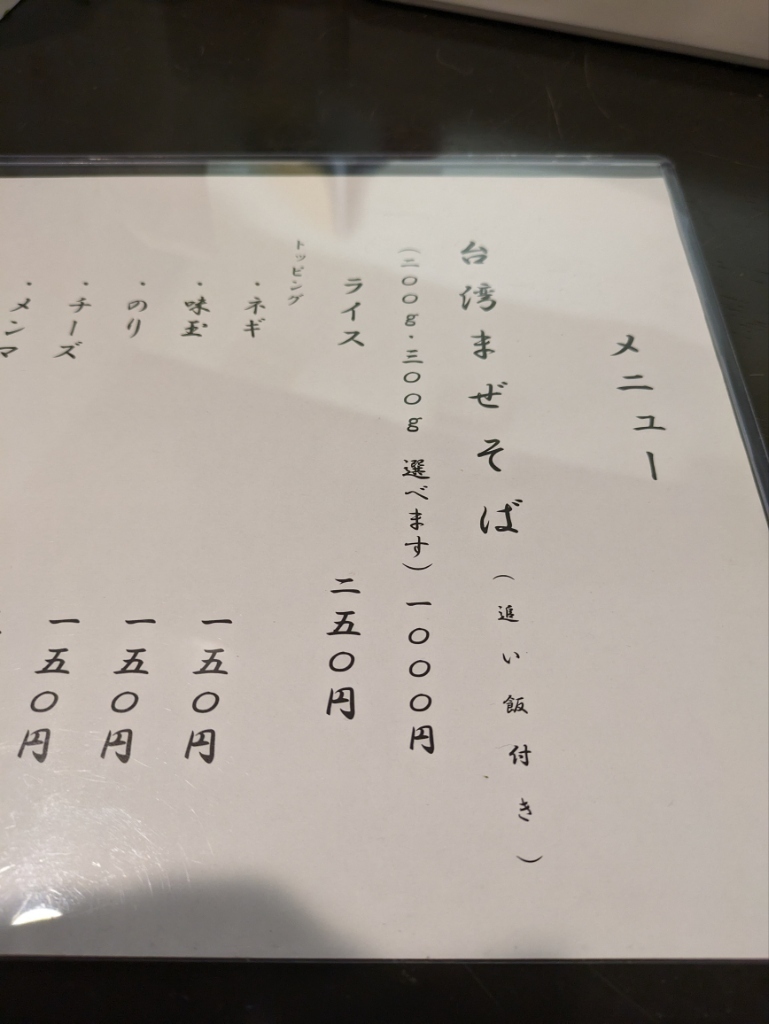 メニュー
台湾まぜそば（追い飯付き）
（二〇〇g・三〇〇g 選べます）一〇〇〇円
ライス 二五〇円
トッピング
・ネギ 一五〇円
・味玉 一五〇円
・のり 一五〇円
・チーズ
・メンマ